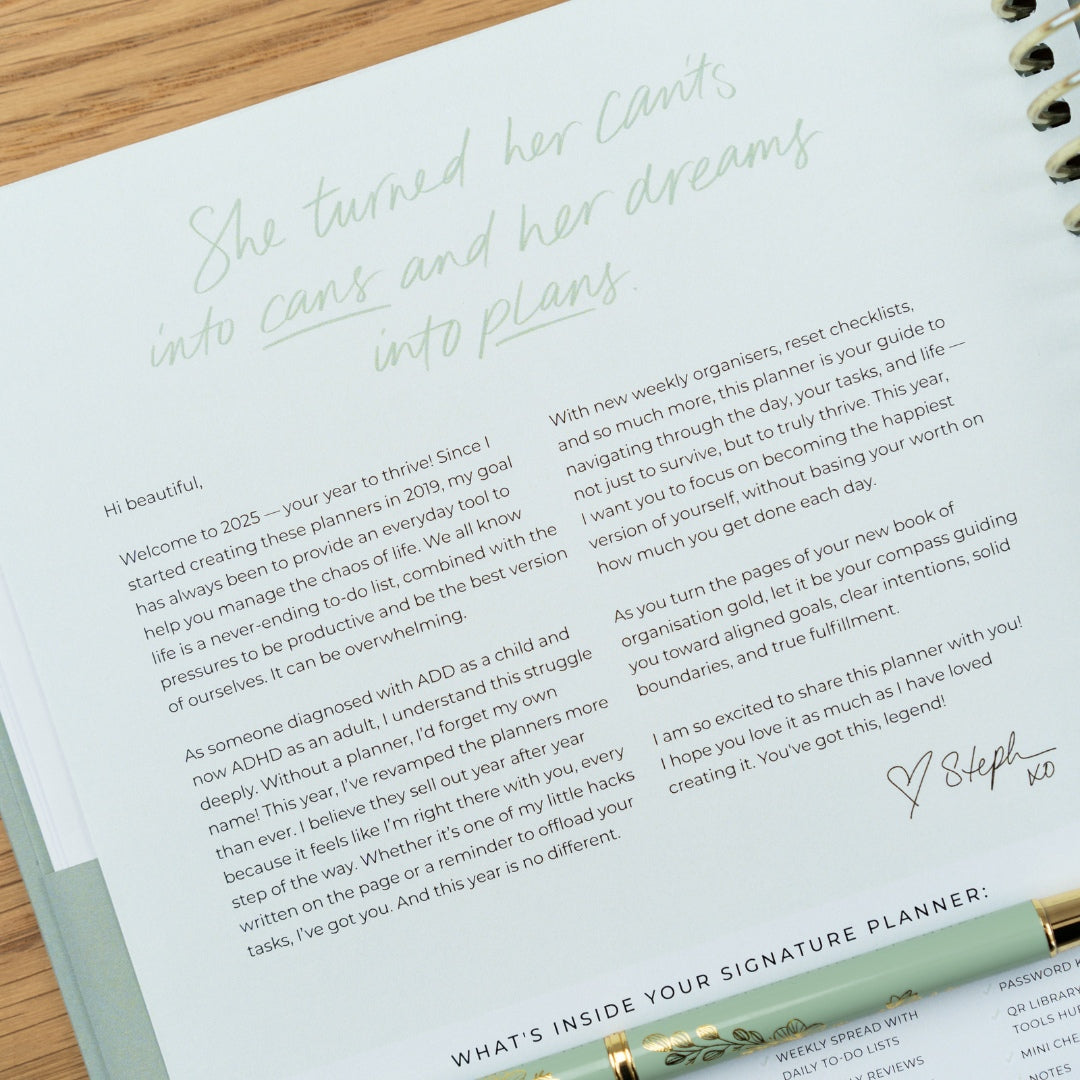 She turned her can'ts
into cans and her dreams
into plans.
Hi beautiful,
Welcome to 2025 — your year to thrive! Since I
started creating these planners in 2019, my goal
has always been to provide an everyday tool to
help you manage the chaos of life. We all know
life is a never-ending to-do list, combined with the
pressures to be productive and be the best version
of ourselves. It can be overwhelming.
As someone diagnosed with ADD as a child and
now ADHD as an adult, I understand this struggle
deeply. Without a planner, I'd forget my own
name! This year, I've revamped the planners more
than ever. I believe they sell out year after year
because it feels like I'm right there with you, every
step of the way. Whether it's one of my little hacks
written on the page or a reminder to offload your
tasks, I've got you. And this year is no different.
With new weekly organisers, reset checklists,
and so much more, this planner is your guide to
navigating through the day, your tasks, and life —
not just to survive, but to truly thrive. This year,
I want you to focus on becoming the happiest
version of yourself, without basing your worth on
how much you get done each day.
As you turn the pages of your new book of
organisation gold, let it be your compass guiding
you toward aligned goals, clear intentions, solid
boundaries, and true fulfillment.
I am so excited to share this planner with you!
I hope you love it as much as I have loved
creating it. You've got this, legend!
Steph
XO
WHAT'S INSIDE YOUR SIGNATURE PLANNER:
WEEKLY SPREAD WITH
DAILY TO-DO LISTS
REVIEWS
PASSWORD
QR LIBRARY
TOOLS
MINI
NOTES